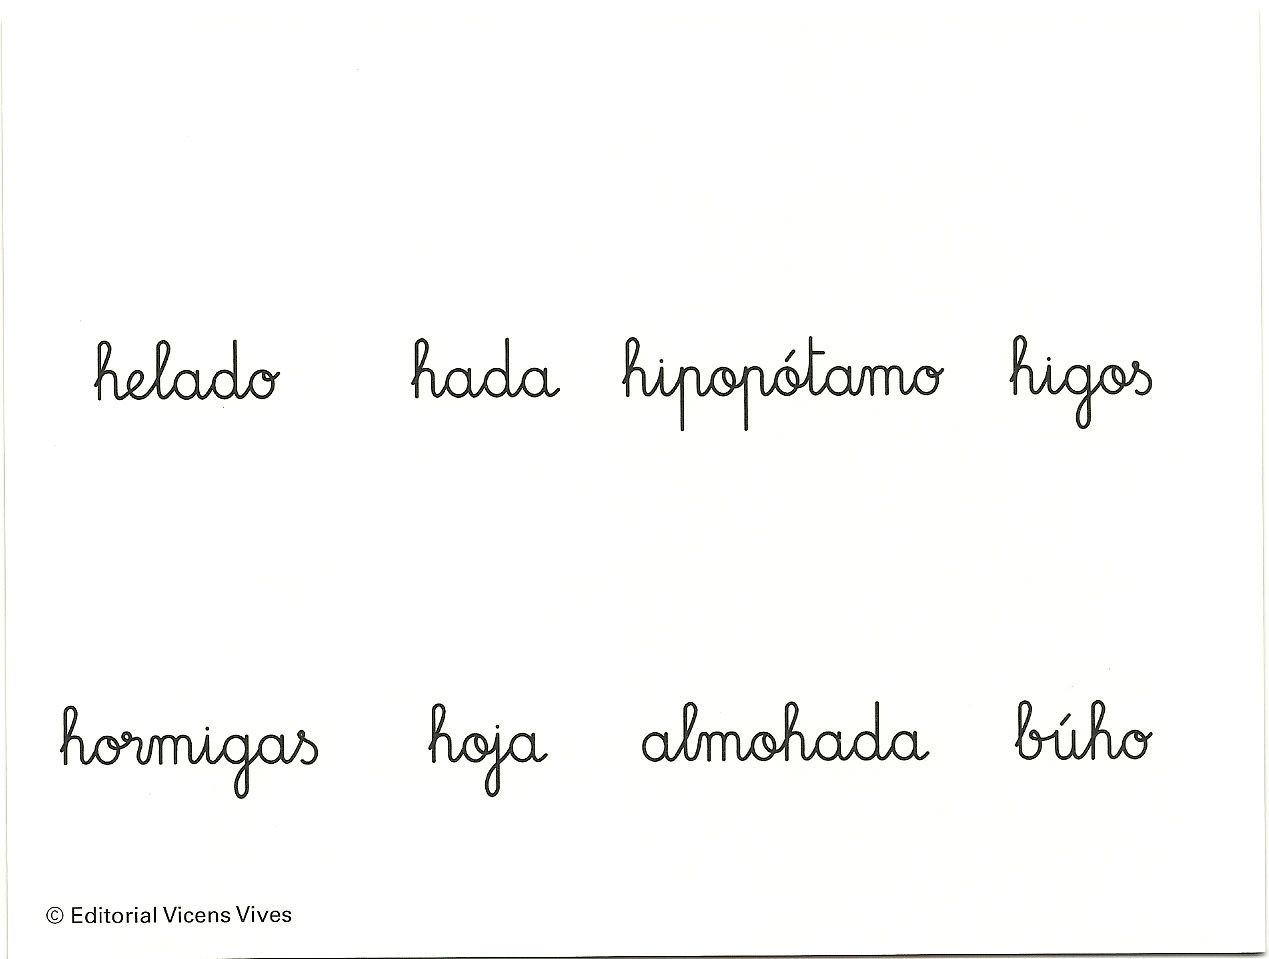 helado hada hipopótamo higos
hormigas hoja almohada búho
© Editorial Vicens Vives